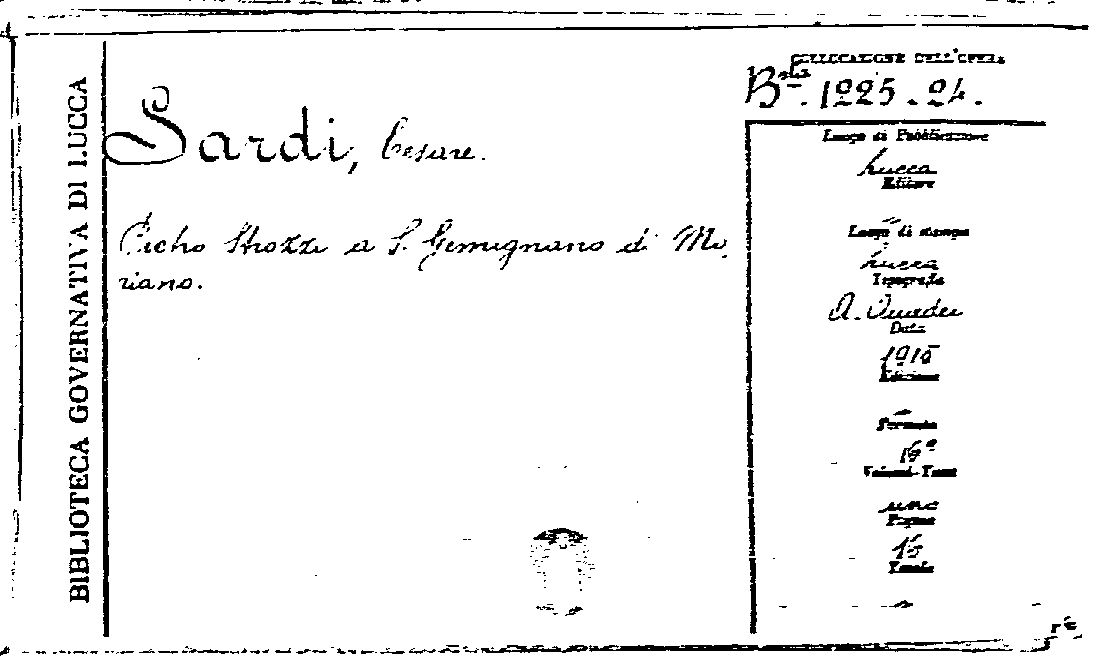 BIBLIOTECA GOVERNATIVA DI LUCCA
COLLOCAZIONE DELL'OPERA
B.ta 1225.24.
Sardi, Cesare.
Pietro Strozzi a S. Gemignano di Mo-
riano.
Luogo di Pubblicazione
Lucca
Editore
-
Luogo di stampa
Lucca
Tipografia
Data
1915
Edizione
-
Formato
16°
Volumi-Tomi
uno
Pagine
Tavole
-